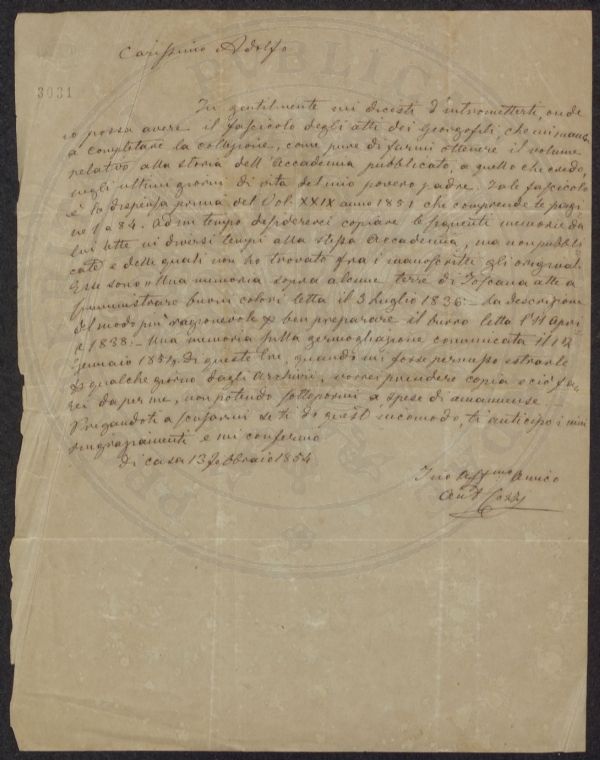 Carissimo Adolfo
3031
Tu gentilmente mi dicesti d'intrometterti, onde
io possa avere il fascicolo degli atti dei Georgofili, che mi manca
a completare la collezione, come pure di farmi ottenere il volume
relativo alla storia dell'Accademia pubblicato, a quello che credo,
negli ultimi giorni di vita del mio povero padre. Tale fascicolo
è la dispensa prima del Vol. XXIX anno 1851 che comprende le pagi
ne 1 a 84. Ad un tempo desidererei copiare le seguenti memorie da
lui lette in diversi tempi alla stessa Accademia, ma non pubbli
cate e delle quali non ho trovato fra i manoscritti gli originali
Esse sono = Una memoria sopra alcune terre di Toscana atte a
somministrare buoni colori letta il 3 Luglio 1836 = La descrizione
del modo più ragionevole di ben preparare il burro letta l'11 Apri
le 1838 = Una memoria sulla germogliazione comunicata il 12
Gennaio 1851. Di queste tre, quando mi fosse permesso estrarle
per qualche giorno dagli Archivii, vorrei prendere copia e ciò fa
rei da per me, non potendo sottopormi a spese di amanuense =
Pregandoti a scusarmi se ti do quest'incomodo, ti anticipo i miei
ringraziamenti e mi confermo
Di casa 13 Febbraio 1854
Tuo Aff.mo Amico
Ant.